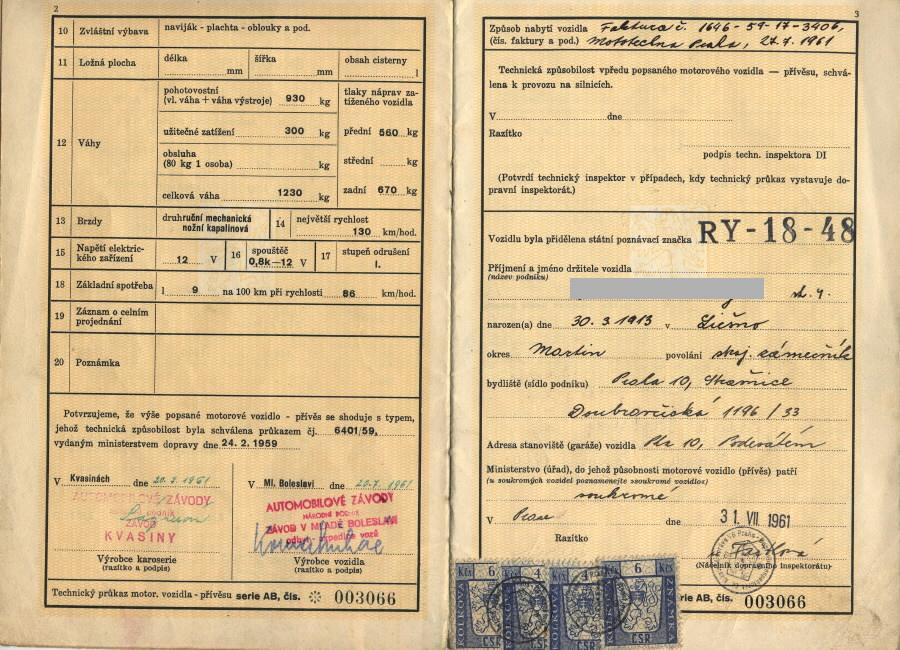 2
10 Zvláštní výbava naviják - plachta - oblouky a pod.
11 Ložná plocha délka mm šířka mm obsah cisterny l
12 Váhy
pohotovostní
(vl. váha + váha výstroje) 930 kg
užitečné zatížení 300 kg
obsluha
(80 kg 1 osoba) kg
celková váha 1230 kg
tlaky náprav za-
tíženého vozidla
přední 560 kg
střední kg
zadní 670 kg
13 Brzdy druh ruční mechanická
nožní kapalinová
14 největší rychlost
130 km/hod.
15 Napětí elektric-
kého zařízení 12 V
16 spouštěč
0,8k—12 V
17 stupeň odrušení
I.
18 Základní spotřeba l 9 na 100 km při rychlosti 86 km/hod.
19 Záznam o celním
projednání
20 Poznámka
Potvrzujeme, že výše popsané motorové vozidlo - přívěs se shoduje s typem,
jehož technická způsobilost byla schválena průkazem čj. 6401/59,
vydaným ministerstvem dopravy dne 24. 2. 1959
V Kvasinách dne 20. 7. 1961
AUTOMOBILOVÉ ZÁVODY
národní podnik
ZÁVOD
KVASINY
Výrobce karoserie
(razítko a podpis)
V Ml. Boleslavi dne 20.7. 1961
AUTOMOBILOVÉ ZÁVODY
NÁRODNÍ PODNIK
ZÁVOD V MLADÉ BOLESLAVI
odbyt expedice vozů
Výrobce vozidla
(razítko a podpis)
Technický průkaz motor. vozidla - přívěsu serie AB, čís. 003066
3
Způsob nabytí vozidla Faktura č. 1646-59-17-3406,
(čís. faktury a pod.) Mototechna Praha, 27.7.1961
Technická způsobilost vpředu popsaného motorového vozidla — přívěsu, schvá-
lena k provozu na silnicích.
V dne
Razítko
podpis techn. inspektora DI
(Potvrdí technický inspektor v případech, kdy technický průkaz vystavuje do-
pravní inspektorát.)
Vozidlu byla přidělena státní poznávací značka RY-18-48
Příjmení a jméno držitele vozidla
(název podniku)
narozen(a) dne 30. 3. 1913 v
okres Martin povolání stroj. zámečník
bydliště (sídlo podniku) Praha 10, Strašnice
Doubravčická 1196/33
Adresa stanoviště (garáže) vozidla Pha 10,
Ministerstvo (úřad), do jehož působnosti motorové vozidlo (přívěs) patří
(u soukromých vozidel poznamenejte »soukromé vozidlo«)
soukromé
V Praze dne 31. VII. 1961
Razítko
(Náčelník dopravního inspektorátu)
Kčs 6 4 4 6 Kčs
KOLKOVNÁ
ČSR ČSR
serie AB, čís. 003066